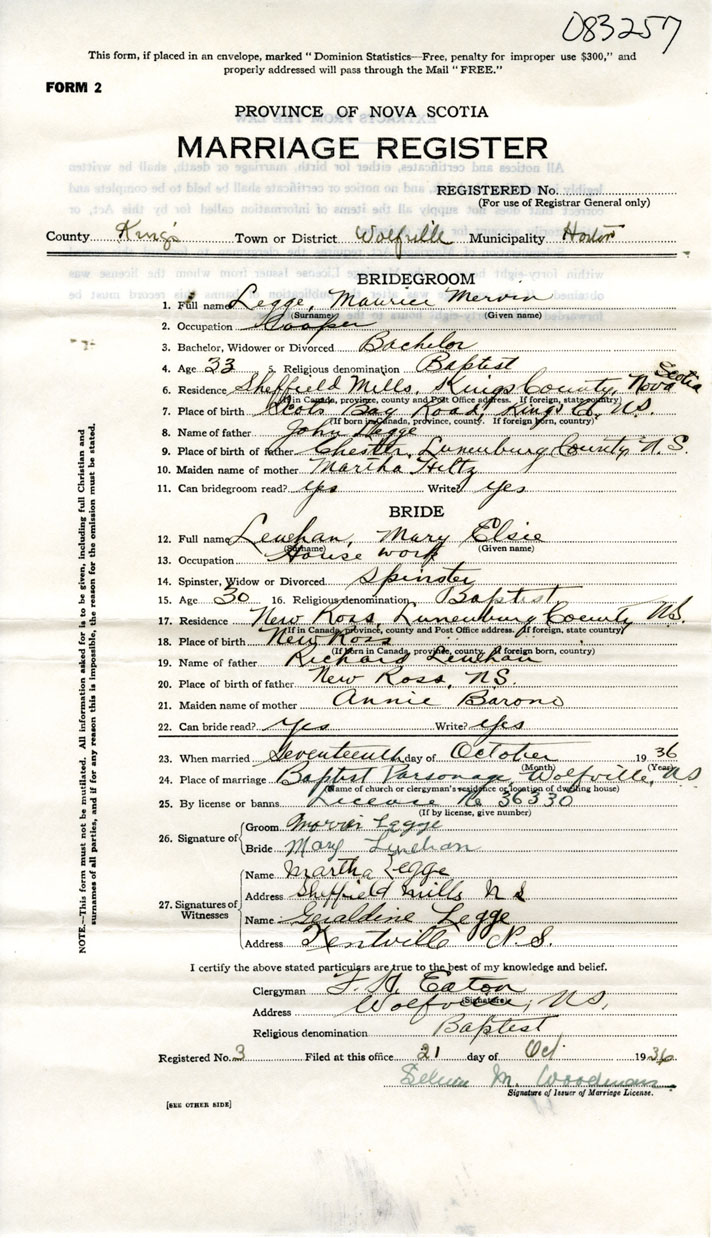 083257
This form, if placed in an envelope, marked "Dominion Statistics—Free, penalty for improper use $300," and
properly addressed will pass through the Mail "FREE."
FORM 2
PROVINCE OF NOVA SCOTIA
MARRIAGE REGISTER
REGISTERED No.
(For use of Registrar General only)
County King's Town or District Wolfville Municipality Horton
BRIDEGROOM
1. Full name Legge, Maurice Mervin
(Surname) (Given name)
2. Occupation Cooper
3. Bachelor, Widower or Divorced Bachelor
4. Age 33 5. Religious denomination Baptist
6. Residence Sheffield Mills, Kings County, Nova Scotia
(If in Canada, province, county and Post Office address. If foreign, state country)
7. Place of birth Scots Bay Road, Kings Co, N.S.
(If born in Canada, province, county. If foreign born, country)
8. Name of father John Legge
9. Place of birth of father Chester, Lunenburg County N.S.
10. Maiden name of mother Martha Hiltz
11. Can bridegroom read? yes Write? yes
BRIDE
12. Full name Lenehan, Mary Elsie
(Surname) (Given name)
13. Occupation House work
14. Spinster, Widow or Divorced Spinster
15. Age 30 16. Religious denomination Baptist
17. Residence New Ross, Lunenburg County N.S.
(If in Canada, province, county and Post Office address. If foreign, state country)
18. Place of birth New Ross
(If born in Canada, province, county. If foreign born, country)
19. Name of father Richard Lenehan
20. Place of birth of father New Ross, N.S.
21. Maiden name of mother Annie
22. Can bride read? Yes Write? Yes
23. When married Seventeenth day of October 1936
(Month) (Year)
24. Place of marriage Baptist Parsonage, Wolfville, NS
(Name of church or clergyman's residence or location of dwelling house)
25. By license or banns License No 36330
(If by license, give number)
26. Signature of
Groom Legge
Bride Mary Linehan
27. Signatures of Witnesses
Name Martha Legge
Address Sheffield Mills N S
Name Geraldine Legge
Address Kentville N.S.
I certify the above stated particulars are true to the best of my knowledge and belief.
Clergyman Eaton
(Signature)
Address Wolfville, NS.
Religious denomination Baptist
Registered No. 3 Filed at this office 21 day of Oct 1936
M. Woodman
Signature of Issuer of Marriage License.
[SEE OTHER SIDE]
NOTE.—This form must not be mutilated. All information asked for is to be given, including full Christian and
surnames of all parties, and if for any reason this is impossible, the reason for the omission must be stated.